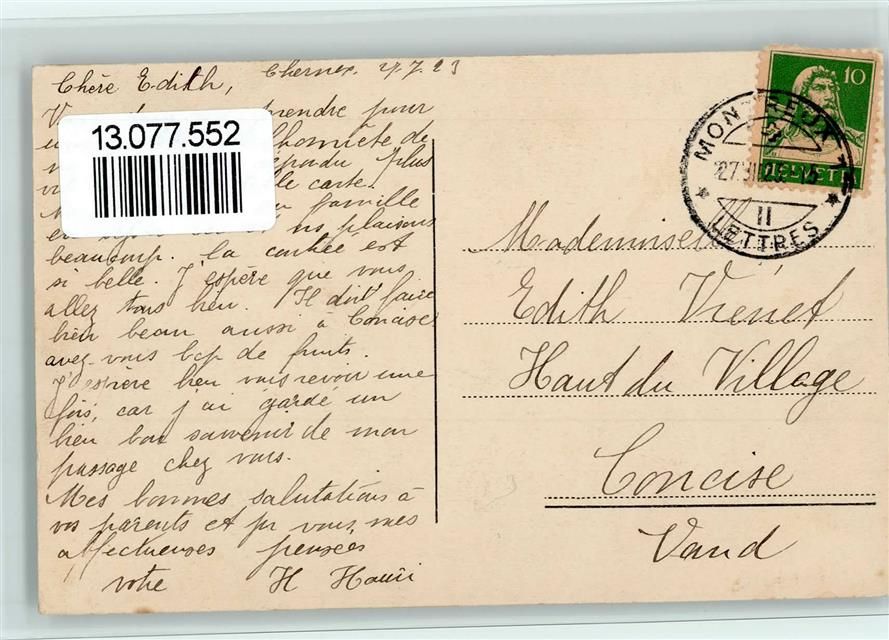 Chère Edith, Chernex. 27.7.23
prendre pour
l'honnête de
répondu plus
le carte.
famille
plaisons
beaucoup. la contrée est
si belle. J'espère que vous
allez tous bien. Il doit faire
bien beau aussi à Concise
avez-vous bcp de fruits.
J'espère bien vous revoir une
fois, car j'ai gardé un
bien bon souvenir de mon
passage chez vous.
Mes bonnes salutations à
vos parents et pr vous, mes
affectueuses pensées
votre H Hauri
13.077.552
10
HELVETIA
MONTREUX 1
27.VII.23
II
LETTRES
Mademoiselle
Edith Vienet
Haut du Village
Concise
Vaud